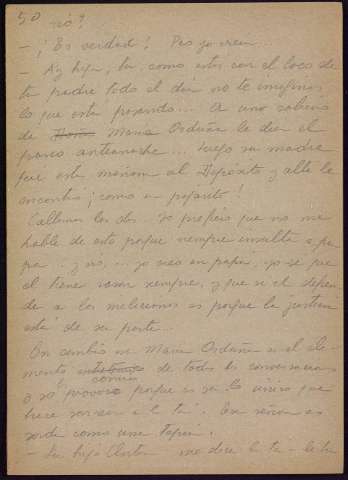 50
no?
- ¡Es verdad! Pero yo creia...
- Ay hija, tu como estas con el loco de
tu padre todo el dia no te imaginas
lo que está pasando... A una sobrina
de Maria Orduña le dieron el
paseo anteanoche... Luego su madre
fue esta mañana al Deposito y alli la
encontró ¡como un pajarito!
Callamos las dos. Yo prefiero que no me
hable de esto porque siempre insulta a pa
pa y yo, ... yo creo en papa, yo se que
el tiene razon siempre, y que si el defien
de a los milicianos es porque la justicia
está de su parte.
En cambio es Maria Orduña es el ele
mento de todas las conversaciones
cómico
o no porque es la única que
hace sonreir a la tia. En sesion es
sorda como una tapia.
- Su hija me dice la tia - le ha